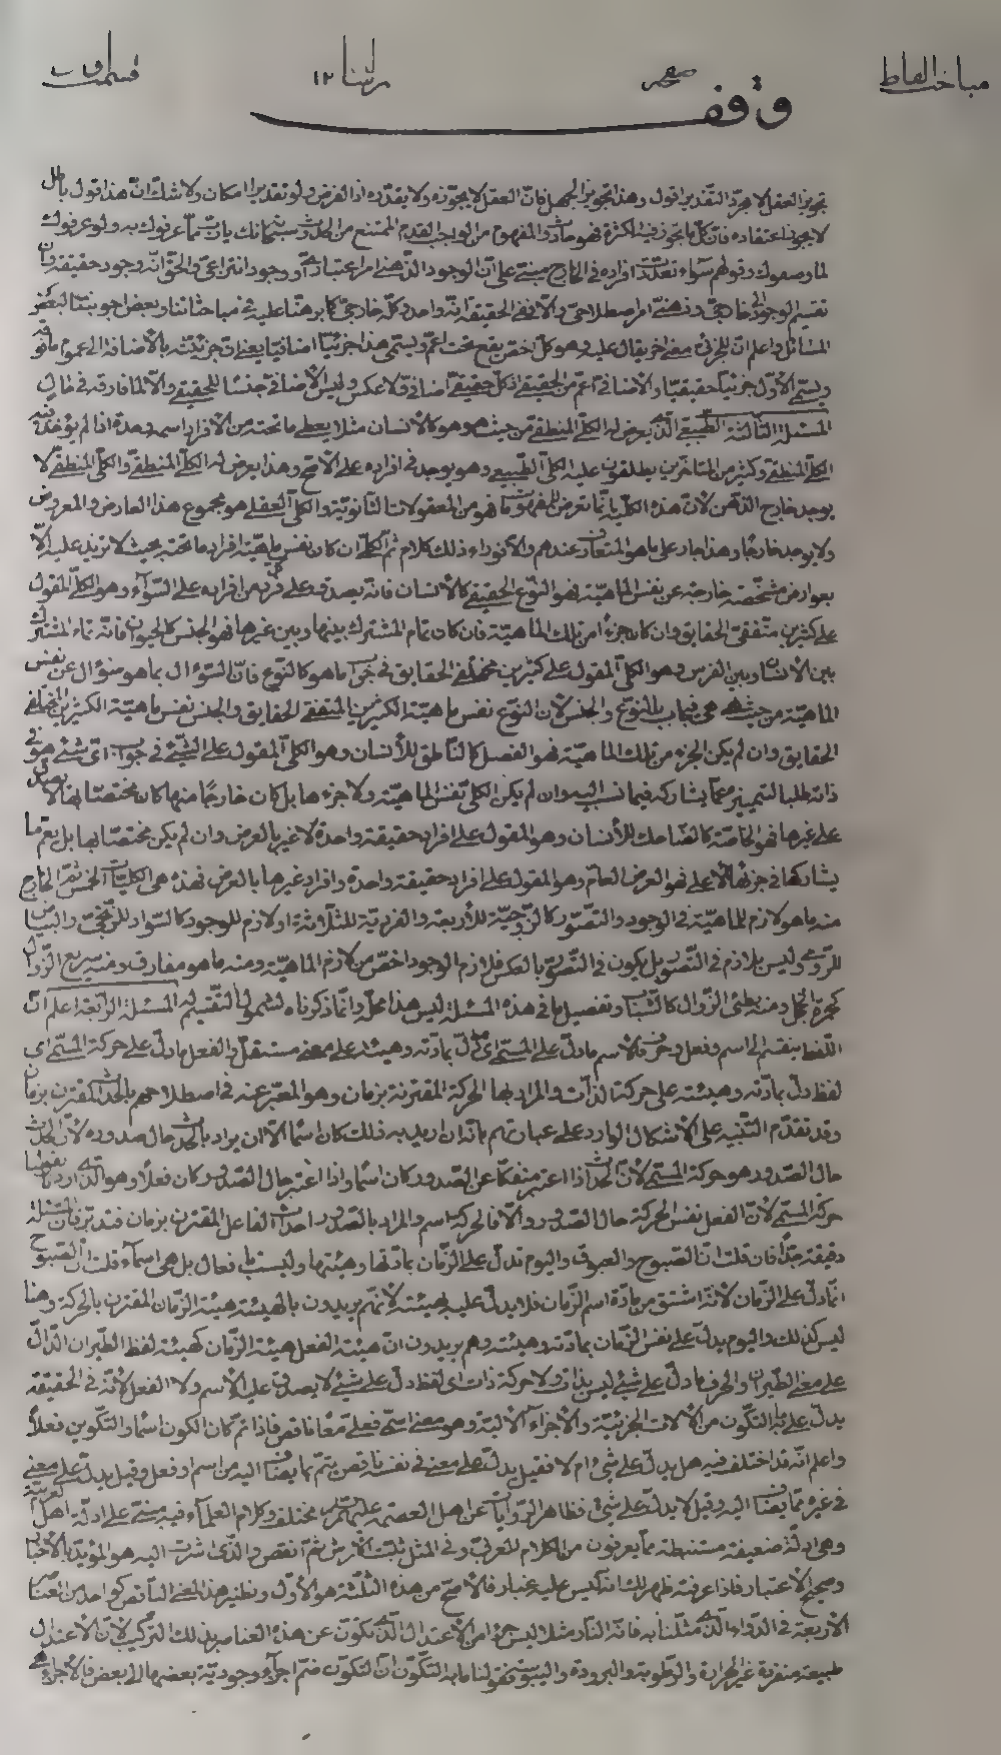 مباحث الفاظ صفحه رسالة ١٢ قسمت اول
وقف
تجويز العقل لا مجرد التقدير اقول وهذا تجويز الجهل فان العقل لا يجوزه ولا يقدره اذ الفرض ولو تقديرا امكان ولا شك ان هذا قول باطل
لا يجوز اعتقاده فان كل ما تجوز فيه الكثرة فهو حادث والمفهوم من الواجب القدم الممتنع من الحدوث سبحانك يا رب ما عرفوك به ولو عرفوك
لما وصفوك وقولهم سواء تعددت افراده في الخارج مبني على ان الوجود الذهني امر اعتباري او وجود انتزاعي والحق انه وجود حقيقة وان
تقسيم الوجود الى خارجي وذهني امر اصطلاحي والا ففي الحقيقة انه واحد وكله خارجي كما برهنا عليه في مباحثاتنا وبعض اجوبتنا لبعض
المسائل واعلم ان للجزئي معنى اخر يقال عليه وهو كل اخص يقع تحت اعم ويسمى هذا جزئيا اضافيا يعني ان جزئيته بالاضافة الى عموم ما فوقه
ويسمى الاول جزئيا حقيقيا والاضافي اعم من الحقيقي اذ كل حقيقي اضافي ولا عكس وليس الاضافي جنسا للحقيقي والا لما فارقه في حال
المسئلة الثالثة الطبيعي الذي يعرض له الكلي المنطقي من حيث هو هو كالانسان مثلا يعطي ما تحته من الافراد اسمه وحده اذا لم يؤخذ فيه
الكلي المنطقي وكثير من المتاخرين يطلقون عليه الكلي الطبيعي وهو يوجد في افراده على الاصح وهذا يعرض له الكلي المنطقي والكلي المنطقي لا
يوجد خارج الذهن لان هذه الكلية انما تعرض للمفهومات فهو من المعقولات الثانوية والكلي العقلي هو مجموع هذا العارض والمعروض
ولا يوجد خارجا وهذا جار على ما هو المتعارف عندهم والا فوراء ذلك كلام ثم الكلي ان كان نفس ماهية افراد ما تحته بحيث لا تزيد عليه الا
بعوارض مشخصة خارجة عن نفس الماهية فهو النوع الحقيقي كالانسان فانه يصدق على كل فرد من افراده على السواء وهو الكلي المقول
على كثيرين متفقي الحقايق وان كان جزءا من تلك الماهية فان كان تمام المشترك بينها وبين غيرها فهو الجنس كالحيوان فانه تمام المشترك
بين الانسان وبين الفرس وهو الكلي المقول على كثيرين مختلفي الحقايق في جواب ما هو كالنوع فان السؤال بما هو سؤال عن نفس
الماهية من حيث هي هي فيجاب بالنوع والجنس لان النوع نفس ماهية الكثيرين المتفقي الحقايق والجنس نفس ماهية الكثيرين المختلفي
الحقايق وان لم يكن الجزء من تلك الماهية فهو الفصل كالناطق للانسان وهو الكلي المقول على الشيء في جواب اي شيء هو في
ذاته طلبا لتمييزه عما يشاركه فيما نسب اليه وان لم يكن الكلي نفس الماهية ولا جزءها بل كان خارجا منها كان مختصا بها لا يصدق
على غيرها فهو الخاصة كالضاحك للانسان وهو المقول على افراد حقيقة واحدة لا غير بالعرض وان لم يكن مختصا بها بل يعم ما
يشاركها في جزئها الاعلى فهو العرض العام وهو المقول على افراد حقيقة واحدة وافراد غيرها بالعرض فهذه هي الكليات الخمس ثم الخارج
منه ما هو لازم للماهية في الوجود والتصور كالزوجية للاربعة والفردية للثلاثة او لازم للوجود كالسواد للزنجي والبياض
للرومي وليس بلازم في التصور بل يكون في التصور بالعكس فلازم الوجود اخص من لازم الماهية ومنه ما هو مفارق ومنه سريع الزوال
كحمرة الخجل ومنه بطيء الزوال كالشباب وتفصيل ما في هذه المسئلة ليس هذا محله وانما ذكرناه لشمول التقسيم له المسئلة الرابعة اعلم ان
اللفظ ينقسم الى اسم وفعل وحرف فالاسم ما دل على المسمى اي ما دل بمادته وهيئته على معنى مستقل والفعل ما دل على حركة المسمى اي
لفظ دل بمادته وهيئته على حركة الذات والمراد بها الحركة المقترنة بزمان وهو المعبر عنه في اصطلاحهم بالحدث المقترن بزمان
وقد تقدم التنبيه على الاشكال الوارد على عباراتهم بانه ان اريد به ذلك كان اسما الا ان يراد بالحدث حال صدوره لان الحدث
حال الصدور هو حركة المسمى لان الحدث اذا اعتبر منفكا عن الصدور كان اسما واذا اعتبر حال الصدور كان فعلا وهو الذي اردنا بقولنا
حركة المسمى لان الفعل نفس الحركة حال الصدور والا فالحركة اسم والمراد بالصدور احداث الفاعل المقترن بزمان فتدبر فان المسئلة
دقيقة جدا فان قلت ان الصبوح والغبوق واليوم تدل على الزمان بمادتها وهيئتها وليست بافعال بل هي اسماء قلت ان الصبوح
انما دل على الزمان لانه اشتق من مادة اسم الزمان فلا يدل عليه بهيئته لانهم يريدون بالهيئة هيئة الزمان المقترن بالحركة وهنا
ليس كذلك واليوم يدل على نفس الزمان بمادته وهيئته وهم يريدون ان هيئة الفعل هيئة الزمان كهيئة لفظ الطيران الدال
على معنى الطيران والحرف ما دل على شيء ليس بذات ولا حركة ذات اي لفظ دل على شيء لا يصدق عليه الاسم ولا الفعل لانه في الحقيقة
يدل على ما به التكون من الآلات الجزئية والاجزاء الآلية وهو معنى اسمي فعلي معا ناقص فاذا تم كان الكون اسما والتكوين فعلا
واعلم انه قد اختلف فيه هل يدل على شيء ام لا فقيل يدل على معنى في نفسه ناقص يتم بما يضاف اليه من اسم او فعل وقيل يدل على معنى
في غيره مما يضاف اليه وقيل لا يدل على شيء فظاهر الروايات عن اهل العصمة عليهم السلام مختلف وكلام العلماء فيه مبني على ادلة اهل العربية
وهي ادلة ضعيفة مستنبطة مما يعرفون من الكلام العربي وفي المثل ثبت العرش ثم انقش والذي اشرت اليه هو المؤيد بالاخبار
وصحيح الاعتبار فاذا عرفته ظهر لك انه ليس عليه غبار فالاصح من هذه الثلثة هو الاول ونظير هذا المعنى الناقص كواحد من العناصر
الاربعة في الدواء الذي مثلنا به فانه النار مثلا ليس جزءا من الاعتدال الذي تكون عن هذه العناصر بذلك التركيب لان الاعتدال
طبيعة متفردة غير الحرارة والرطوبة والبرودة واليبوسة فقولنا ما به التكون ان التكون ضم اجزاء وجودية بعضها الى بعض فالاجزاء هي